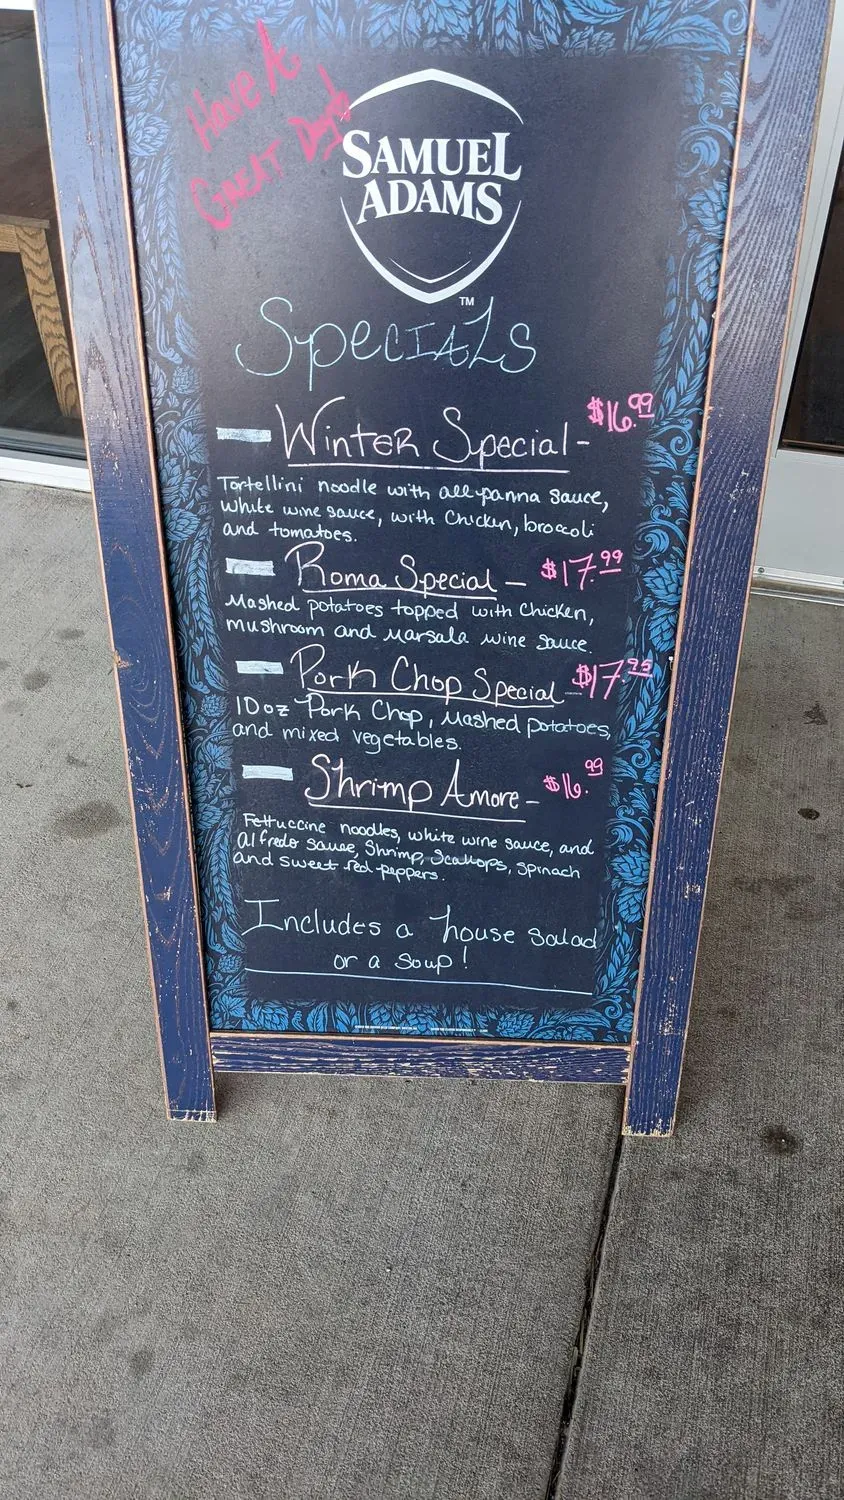 Have A
Great Day!
SAMUEL
ADAMS
TM
Specials
Winter Special - $16.99
Tortellini noodle with all-panna sauce,
white wine sauce, with Chicken, broccoli
and tomatoes.
Roma Special - $17.99
Mashed potatoes topped with Chicken,
mushroom and Marsala wine sauce.
Pork Chop Special $17.95
10oz Pork Chop, Mashed potatoes,
and mixed vegetables.
Shrimp Amore - $16.99
Fettuccine noodles, white wine sauce, and
alfredo sauce, Shrimp, Scallops, spinach
and sweet red peppers.
Includes a house salad
or a soup!